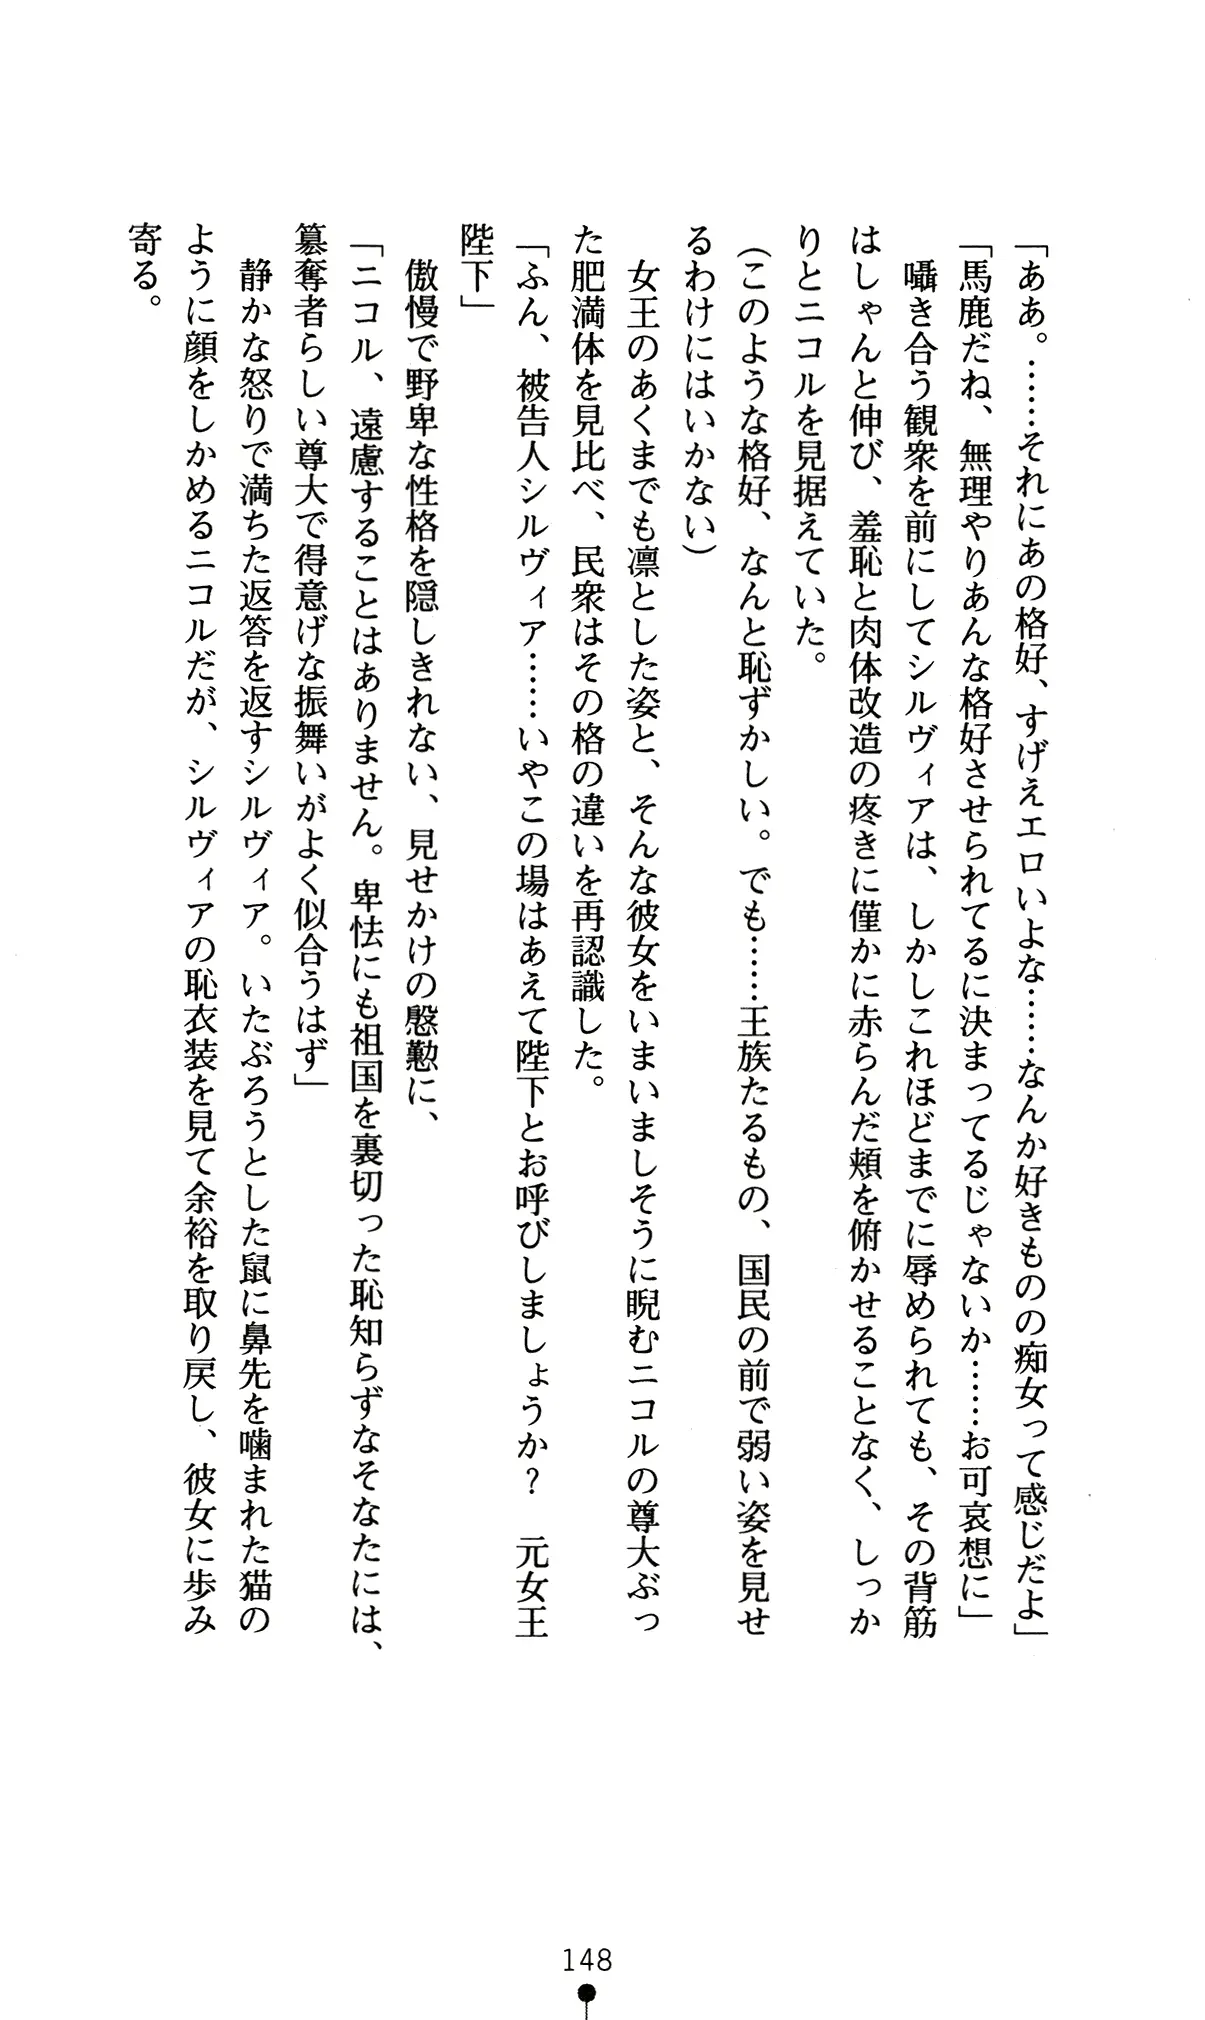 「ああ。……それにあの格好、すげえエロいよな……なんか好きものの痴女って感じだよ」
「馬鹿だね、無理やりあんな格好させられてるに決まってるじゃないか……お可哀想に」
　囁き合う観衆を前にしてシルヴィアは、しかしこれほどまでに辱められても、その背筋
はしゃんと伸び、羞恥と肉体改造の疼きに僅かに赤らんだ頬を俯かせることなく、しっか
りとニコルを見据えていた。
（このような格好、なんと恥ずかしい。でも……王族たるもの、国民の前で弱い姿を見せ
るわけにはいかない）
　女王のあくまでも凛とした姿と、そんな彼女をいまいましそうに睨むニコルの尊大ぶっ
た肥満体を見比べ、民衆はその格の違いを再認識した。
「ふん、被告人シルヴィア……いやこの場はあえて陛下とお呼びしましょうか？　元女王
陛下」
　傲慢で野卑な性格を隠しきれない、見せかけの慇懃に、
「ニコル、遠慮することはありません。卑怯にも祖国を裏切った恥知らずなそなたには、
簒奪者らしい尊大で得意げな振舞いがよく似合うはず」
　静かな怒りで満ちた返答を返すシルヴィア。いたぶろうとした鼠に鼻先を噛まれた猫の
ように顔をしかめるニコルだが、シルヴィアの恥衣装を見て余裕を取り戻し、彼女に歩み
寄る。
148